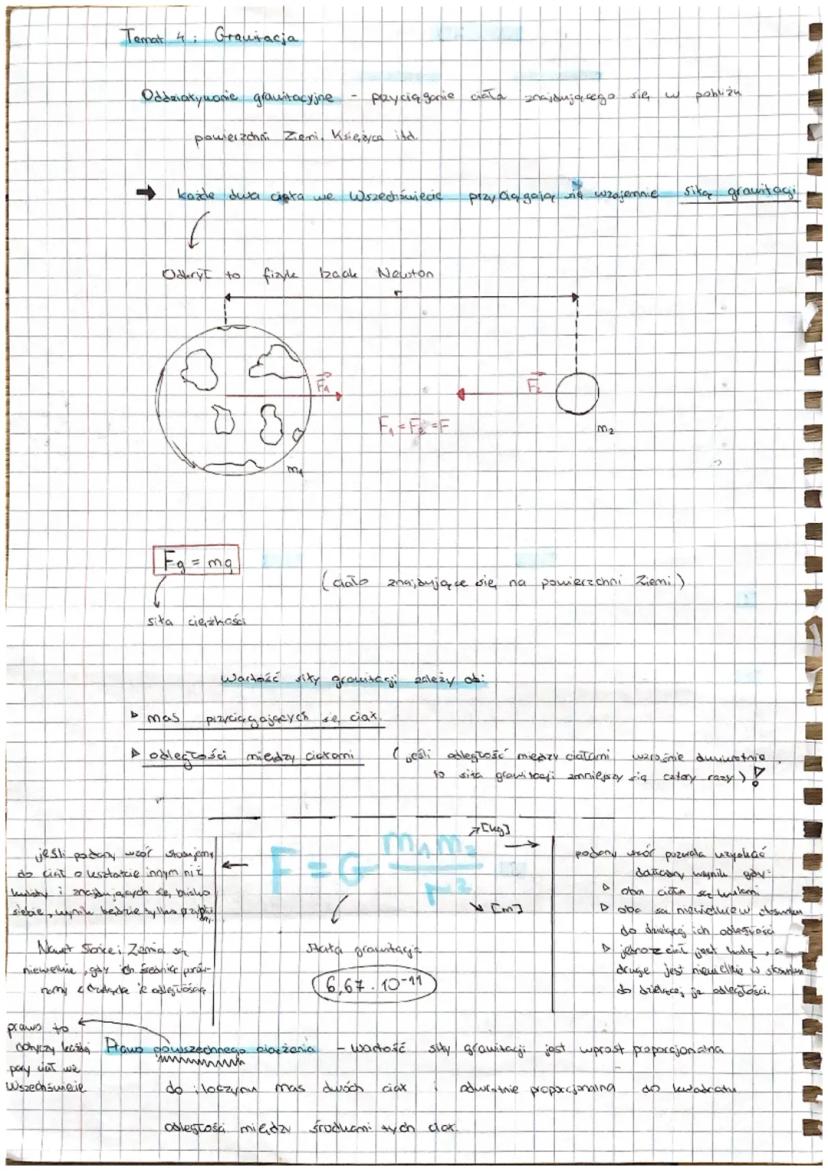 Temat 4: Grawitacja
Oddziaływanie grawitacyjne - przyciąganie ciała znajdującego się w pobliżu
powierzchni Ziemi, Księżyca itd.
→ każde dwa ciała we Wszechświecie przyciągają się wzajemnie siłą grawitacji
Odkrył to fizyk Izaak Newton
r
F₁
F₂
F₁ = F₂ = F
m₁
m₂
Fg = mg
(ciało znajdujące się na powierzchni Ziemi)
siła ciężkości
Wartość siły grawitacji zależy od:
▷ mas przyciągających się ciał.
▷ odległości między ciałami (jeśli odległość między ciałami wzrośnie dwukrotnie,
to siła grawitacji zmniejszy się cztery razy)!
jeśli podany wzór stosujemy
do ciał o kształcie innym niż
kulisty i znajdujących się blisko
siebie, wynik będzie tylko
Nawet Słońce i Ziemia są
niewielkie, gdy ich średnice
z odległością
F = G m₁m₂ / r²
[kg]
[m]
stała grawitacji
6,67 · 10⁻¹¹
podany wzór pozwala uzyskać
dokładny wynik gdy:
▷ oba ciała są kulami
▷ oba są niewielkie w stosunku
do dzielącej ich odległości
▷ jedno z ciał jest kulą, a
drugie jest niewielkie w stosunku
do dzielącej je odległości.
prawo to
dotyczy każdej
pary ciał we
Wszechświecie
Prawo powszechnego ciążenia - wartość siły grawitacji jest wprost proporcjonalna
do iloczynu mas dwóch ciał i odwrotnie proporcjonalna do kwadratu
odległości między środkami tych ciał.